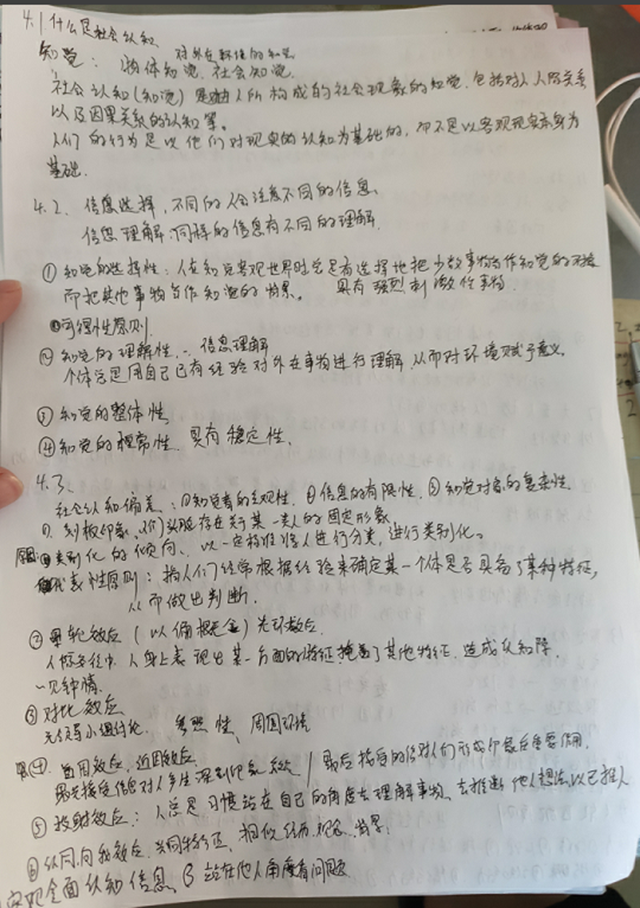 4.1 什么是社会认知
知觉： 对外在环境的知觉
物体知觉、社会知觉.
社会认知(知觉) 是由人所构成的社会现象的知觉.包括对人人际关系
以及因果关系的认知等。
人们的行为是以他们对现实的认知为基础的，而不是以客观现实本身为
基础.
4.2、信息选择，不同的人会注意不同的信息、
信息理解：同样的信息有不同的理解.
① 知觉的选择性：人在知觉客观世界时总是有选择地把少数事物当作知觉的对象
而把其他事物当作知觉的背景。 具有强烈刺激性事物.
可得性原则.
② 知觉的理解性 信息理解
个体总是用自己已有经验对外在事物进行理解.从而对环境赋予意义。
③ 知觉的整体性
④ 知觉的恒常性. 具有稳定性.
4.3、
社会认知偏差：①知觉者的主观性. ②信息的有限性. ③知觉对象的复杂性.
①. 刻板印象、人们头脑存在关于某一类人的固定形象
原因：类别化的倾向、以一定标准将人进行分类，进行类别化。
代表性原则：指人们经常根据经验来确定某一个体是否具备了某种特征，
从而做出判断.
② 晕轮效应(以偏概全) 光环效应.
人际交往中.人身上表现出某一方面的特征掩盖了其他特征.造成认知障
一见钟情.
③ 对比效应
参照性、周围环境
④. 首因效应、近因效应.
最先接受信息对人产生深刻印象 / 最后接受的信对人们形成印象启重要作用.
⑤ 投射效应：人总是习惯站在自己的角度去理解事物、去推断他人想法，以己推人
⑥ 共同特征、相似经历、观念、背景.
客观全面认知信息、 站在他人角度看问题